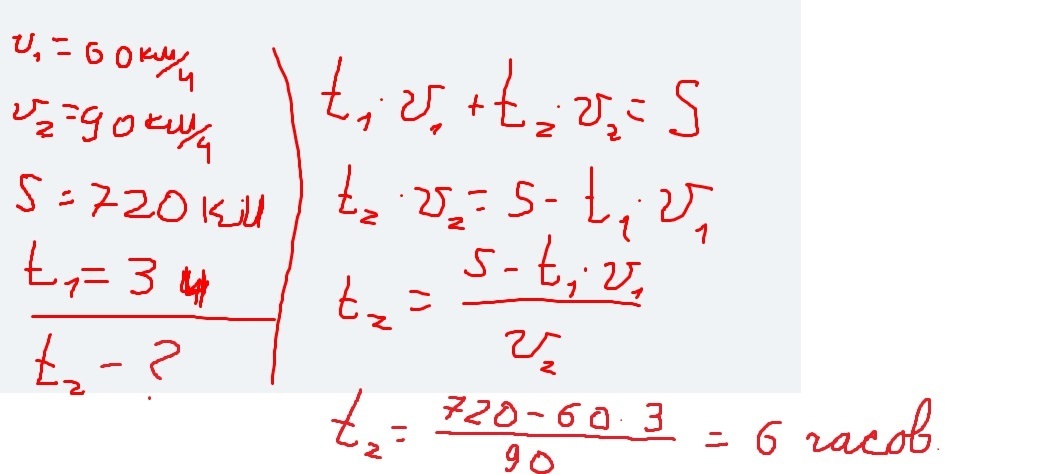 v₁ = 60 км/ч
v₂ = 90 км/ч
S = 720 км
t₁ = 3 ч
t₂ - ?
t₁ · v₁ + t₂ · v₂ = S
t₂ · v₂ = S - t₁ · v₁
t₂ = (S - t₁ · v₁) / v₂
t₂ = (720 - 60 · 3) / 90 = 6 часов.